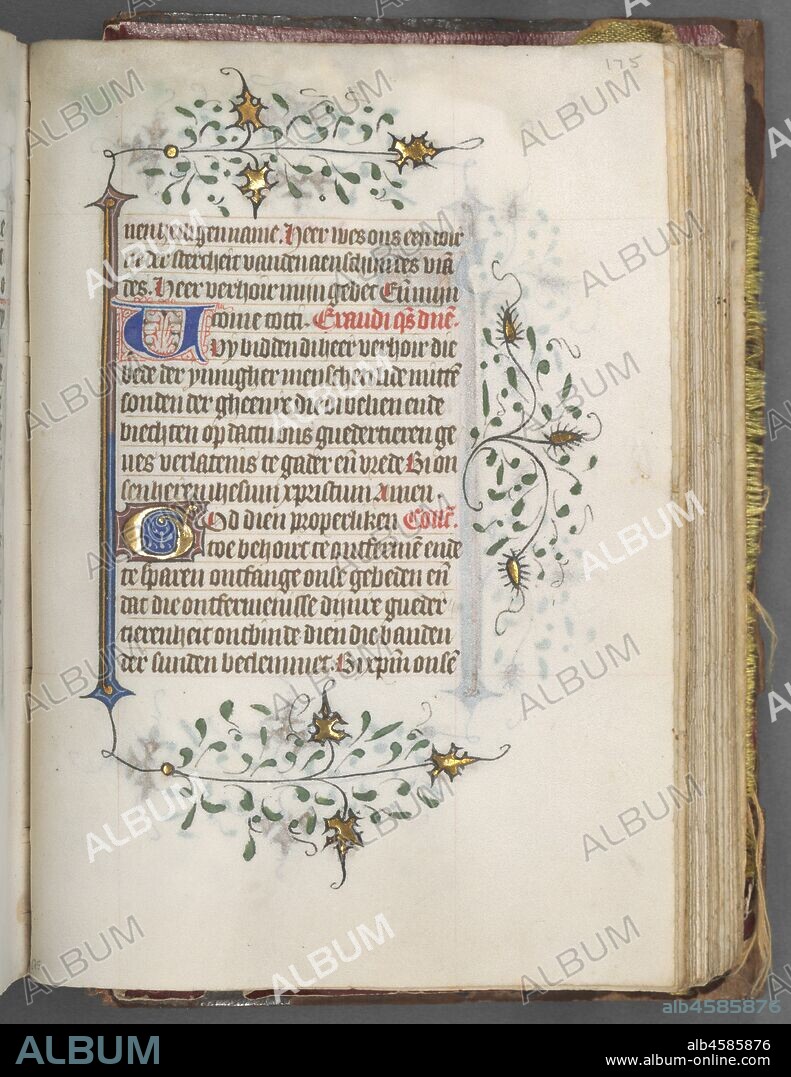 175
uen heiligen name. Heer wes ons een toir
ne der stercheit vanden aenschijn des viā
des. Heer verhoir mijn gebet Eñ mijn
come totti. Exaudi qs dñe.
Wy bidden di heer verhoir die
bede der ynnigher menschen ende
sonden der gheenre die di belien ende
biechten op dattu ons guedertieren ge
ues verlatenis te gader eñ vrede Bi on
sen heren ihesum xpristum Amen
God dien properliken Coll̄c.
toe behoirt te ontfermē ende
te sparen ontfange onse gebeden eñ
dat die ontfermenisse dijnre gueder
tierenheit ontbinde dien die banden
der sunden beclemmet. Bi xpm̄ onsē
ALBUM
alb4585876
ALBUM
alb4585876
www.album-online.com